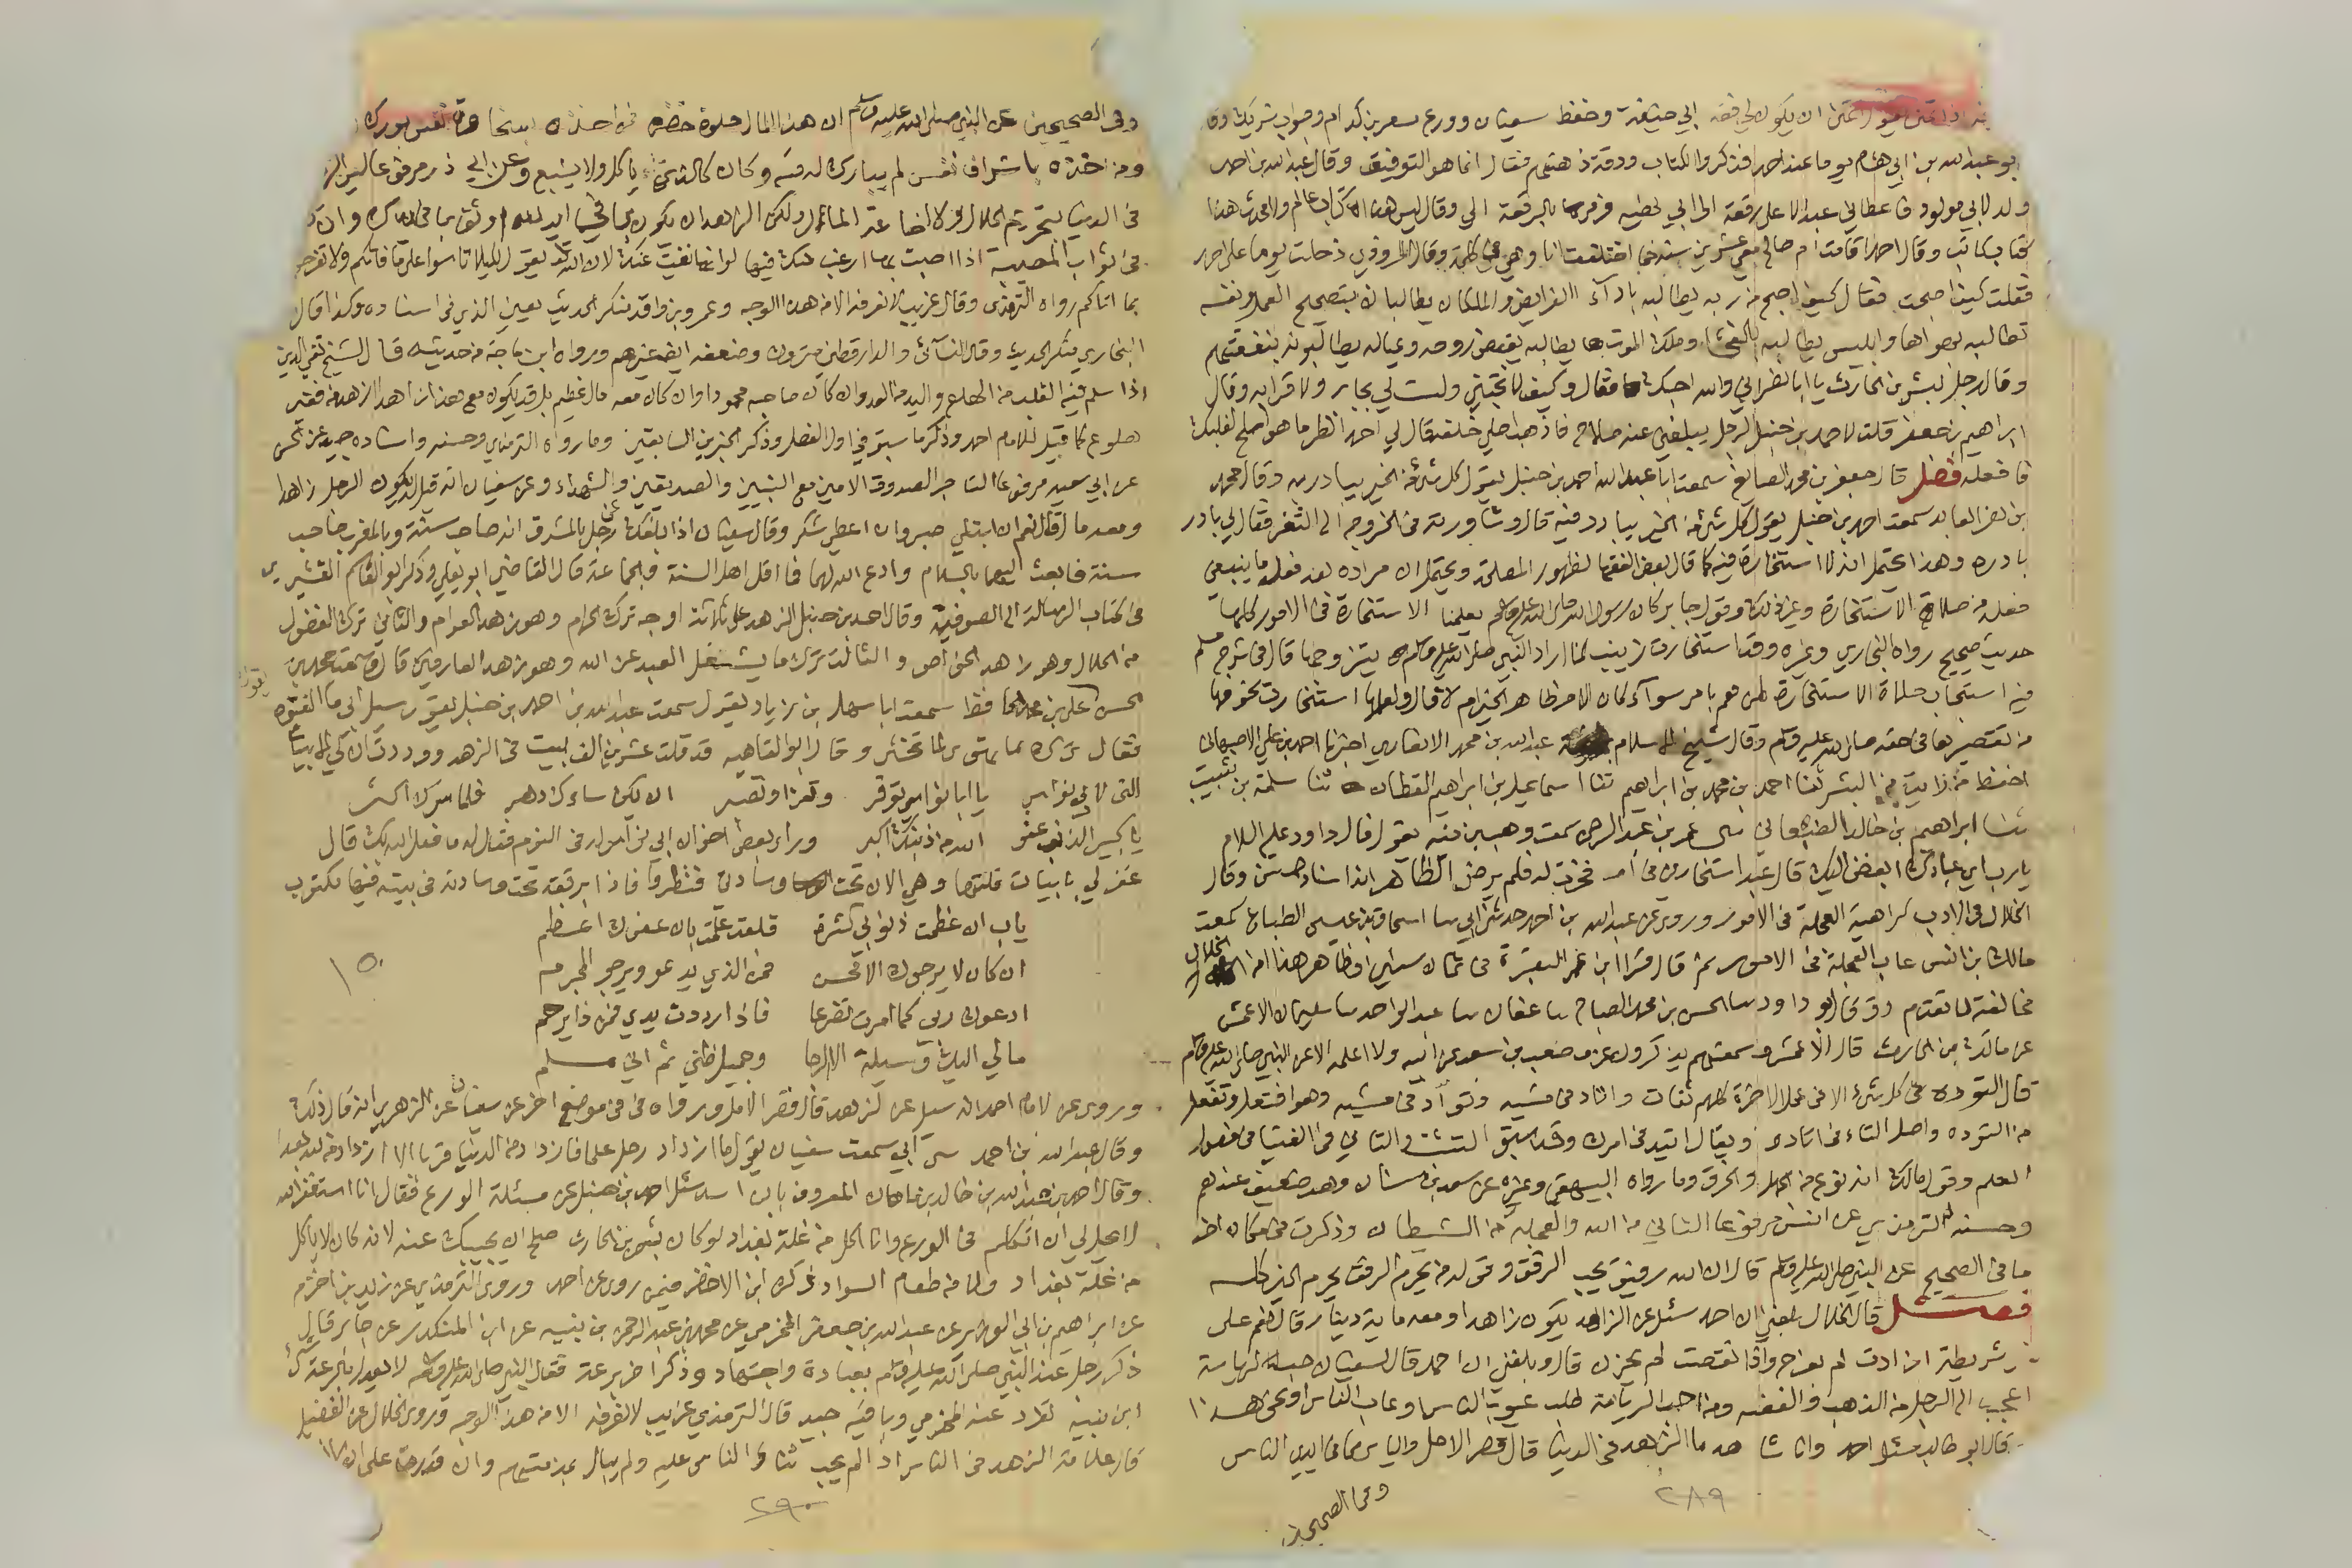 ابو عبد الله بن ابي هشام يوما عند احمد فذكروا الكتاب ودقة ذهنهم فقال انما هو التوفيق وقال عبد الله بن احمد
ولد لابي مولود فاعطاني عبد الاعلى رقعة الى ابي يهنيه فرمى بالرقعة الي وقال ليس هذا كتاب عالم ولا محدث هذا
كتاب كاتب وقال احمد اقامت ام صالح معي عشرين سنة فما اختلفت انا وهي في كلمة وقال المروذي دخلت يوما على احمد
فقلت كيف اصبحت فقال كيف اصبح من ربه يطالبه باداء الفرايض والملكان يطالبانه بتصحيح العمل ونفسه
تطالبه بهواها وابليس يطالبه بالفحشا وملك الموت يطالبه بقبض روحه وعياله يطالبونه بنفقتهم
وقال رجل لبشر بن الحارث يا ابا نصر اني والله احبك فقال وكيف لا تحبني ولست لي بجار ولا قرابه وقال
ابراهيم بن جعفر قلت لاحمد بن حنبل الرجل يبلغني عنه صلاح فاذهب اصلي خلفه قال لي احمد انظر ما هو اصلح لقلبك
فافعله فصل قال جعفر بن محمد الصايغ سمعت ابا عبد الله احمد بن حنبل يقول كل شي من الخير يبادر به وقال محمد
بن نصر العابد سمعت احمد بن حنبل يقول كل شي من الخير يبادر فيه قال وشاورته في الخروج الى الثغر فقال لي بادر
بادر وهذا يحتمل انه لا استخارة فيه كما قال بعض الفقها لظهور المصلحة ويحتمل ان مراده بعد فعل ما ينبغي
فعله من صلاة الاستخارة وغير ذلك وقول جابر كان رسول الله صلى الله عليه وسلم يعلمنا الاستخارة في الامور كلها
حديث صحيح رواه البخاري وغيره وقد استخارت زينب لما اراد النبي صلى الله عليه وسلم يتزوجها قال في شرح مسلم
فيه استحباب صلاة الاستخارة لمن هم بامر سوآء كان الامر ظاهر الخير ام لا قال ولعلها استخارت لخوفها
من تقصيرها في حقه صلى الله عليه وسلم وقال شيخ الاسلام عبد الله بن محمد الانصاري اخبرنا احمد بن علي الاصبهاني
احفظ من رايت من البشر ثنا احمد بن محمد بن ابراهيم ثنا اسماعيل بن ابراهيم القطان ثنا سلمة بن شبيب
ثنا ابراهيم بن خالد الصنعاني عمر بن عبد الرحمن سمعت وهب بن منبه يقول قال داود عليه السلام
يا رب اي عبادك ابغض اليك قال عبد استخارني في امر فخرت له فلم يرض الظاهر انه اسناد حسن وقال
الخلال في الادب كراهية العجلة في الامور وروى عن عبد الله بن احمد حدثني ابي اسحاق بن عيسى الطباع سمعت
مالك بن انس عاب العجلة في الامور ثم قال قرا ابن عمر البقرة في ثمان سنين
مخالفة لما تقدم وقد قال ابو داود الحسن بن محمد الصباح عفان عبد الواحد سليمان الاعمش
عن مالك بن الحارث قال الاعمش وسمعتهم يذكرون عن مصعب بن سعد عن ابيه ولا اعلمه الا عن النبي صلى الله عليه وسلم
قال التوده في كل شي الا في عمل الاخرة كلهم ثقات واتاد في مشيه وتوأد في مشيه وهو افتعل وتفعل
من التوده واصل التاء في اتاد واو ويقال اتيد في امرك وقد سبق التثبت والتاني في الفتيا في فصول
العلم وقول مالك انه نوع من الجهل والخرق وما رواه البيهقي وغيره عن سعد بن سنان وهو ضعيف عندهم
وحسنه الترمذي عن انس مرفوعا التاني من الله والعجلة من الشيطان وذكرت في مكان اخر
ما في الصحيح عن النبي صلى الله عليه وسلم قال ان الله رفيق يحب الرفق وقوله من يحرم الرفق يحرم الخير كله
فصل قال الخلال بلغني ان احمد سئل عن الزاهد يكون زاهدا ومعه ماية دينار قال نعم على
شريطة اذا زادت لم يفرح واذا نقصت لم يحزن قال وبلغني ان احمد قال لسفيان حب الرياسة
اعجب الى الرجل من الذهب والفضه ومن احب الرياسة طلب عيوب الناس او عاب الناس او نحو هذا
قال ابو طالب سئل احمد وانا شاهد ما الزهد في الدنيا قال قصر الامل والاياس مما في ايدي الناس
وفي الصحيحين
٢٨٩
وفي الصحيحين عن النبي صلى الله عليه وسلم ان هذا المال حلوة خضرة فمن اخذه بسخاوة نفس بورك
ومن اخذه باشراف نفس لم يبارك له فيه وكان كالذي ياكل ولا يشبع وعن ابي ذر مرفوعا ليس الزهد
في الدنيا بتحريم الحلال ولا اضاعة المال ولكن الزهد ان تكون بما في يد الله اوثق بما في يدك وان
في ثواب المصيبة اذا اصبت بها ارغب منك فيها لو انها بقيت عنك لان الله يقول لكيلا تاسوا على ما فاتكم ولا تفرحوا
بما اتاكم رواه الترمذي وقال غريب لا نعرفه الا من هذا الوجه وعمرو بن واقد منكر الحديث يعني الذي في اسناده وكذا قال
البخاري منكر الحديث وقال النسائي والدارقطني متروك وضعفه ايضا غيرهم ورواه ابن ماجه من حديثه قال الشيخ تقي الدين
اذا سلم فيه القلب من الهلع واليد من العدوان كان صاحبه محمودا وان كان معه مال عظيم بل قد يكون مع هذا زاهدا ازهد من فقير
هلوع كما قيل للامام احمد وذكر ما سبق في اول الفصل وذكر الخبرين السابقين وما رواه الترمذي وحسنه واسناده جيد عن الحسن
عن ابي سعيد مرفوعا التاجر الصدوق الامين مع النبيين والصديقين والشهداء وعن سفيان انه قيل له يكون الرجل زاهدا
ومعه مال قال نعم ان ابتلي صبر وان اعطي شكر وقال سفيان اذا بلغك عن رجل بالمشرق انه صاحب سنة وبالمغرب صاحب
سنة فابعث اليهما بالسلام وادع الله لهما فما اقل اهل السنة والجماعة قال القاضي ابو يعلى وذكر ابو القاسم القشيري
في كتاب الرسالة الى الصوفية وقال احمد بن حنبل الزهد على ثلاثة اوجه ترك الحرام وهو زهد العوام والثاني ترك الفضول
من الحلال وهو زهد الخواص والثالث ترك ما يشغل العبد عن الله وهو زهد العارفين قال سمعت محمد بن
الحسن علي بن الحافظ سمعت ابا سهل بن زياد يقول سمعت عبد الله بن احمد بن حنبل يقول سيل ابي ما الفتوة
فقال ترك ما تهوى لما تخشى وقال ابو العتاهيه قد قلت عشرين الف بيت في الزهد ووددت ان لي الابيات
التي لابي نواس يا ابا نواس توقر وتعزا وتصبر ان يكن ساءك دهر فلما سرك اكثر
يا كبير الذنب عفو الله من ذنبك اكبر وراى بعض اخوان ابي نواس له في النوم فقال له ما فعل الله بك قال
غفر لي بابيات قلتها وهي الان تحت وسادتي فنظروا فاذا برقعة تحت وسادته في بيته فيها مكتوب
يا رب ان عظمت ذنوبي كثرة فلقد علمت بان عفوك اعظم
ان كان لا يرجوك الا محسن فمن الذي يدعو ويرجو المجرم
ادعوك ربي كما امرت تضرعا فاذا رددت يدي فمن ذا يرحم
مالي اليك وسيلة الا الرجا وجميل ظني ثم اني مسلم
١٥٠
وروى عن الامام احمد انه سيل عن الزهد قال قصر الامل ورواه في موضع اخر عن سفيان عن الزهري انه قال ذلك
وقال عبد الله بن احمد ابي سمعت سفيان يقول ما ازداد رجل علما فازداد من الدنيا قربا الا ازداد من الله بعدا
وقال احمد بن عبد الله بن خالد بن ماهان المعروف بابن اسد سئل احمد بن حنبل عن مسئلة الورع فقال انا استغفر الله
لا يحل لي ان اتكلم في الورع وانا اكل من غلة بغداد لو كان بشر بن الحارث صلح ان يجيبك عنه لانه كان لا ياكل
من غلة بغداد ولا من طعام السواد ذكره ابن الاخضر فيمن روى عن احمد وروى الترمذي عن زيد بن اخزم
عن ابراهيم بن ابي الوزير عن عبد الله بن جعفر المخرمي عن محمد بن عبد الرحمن بن نبيه عن ابن المنكدر عن جابر قال
ذكر رجل عند النبي صلى الله عليه وسلم بعبادة واجتهاد وذكر اخر برعة فقال النبي صلى الله عليه وسلم لا يعدل بالرعة شي
ابن نبيه تفرد عنه المخرمي وباقيه جيد قال الترمذي غريب لا نعرفه الا من هذا الوجه وروى الخلال عن الفضيل
قال علامة الزهد في الناس اذا لم يحب ثناء الناس عليه ولم يبال بمذمتهم وان قدرت على ان لا
٢٩٠